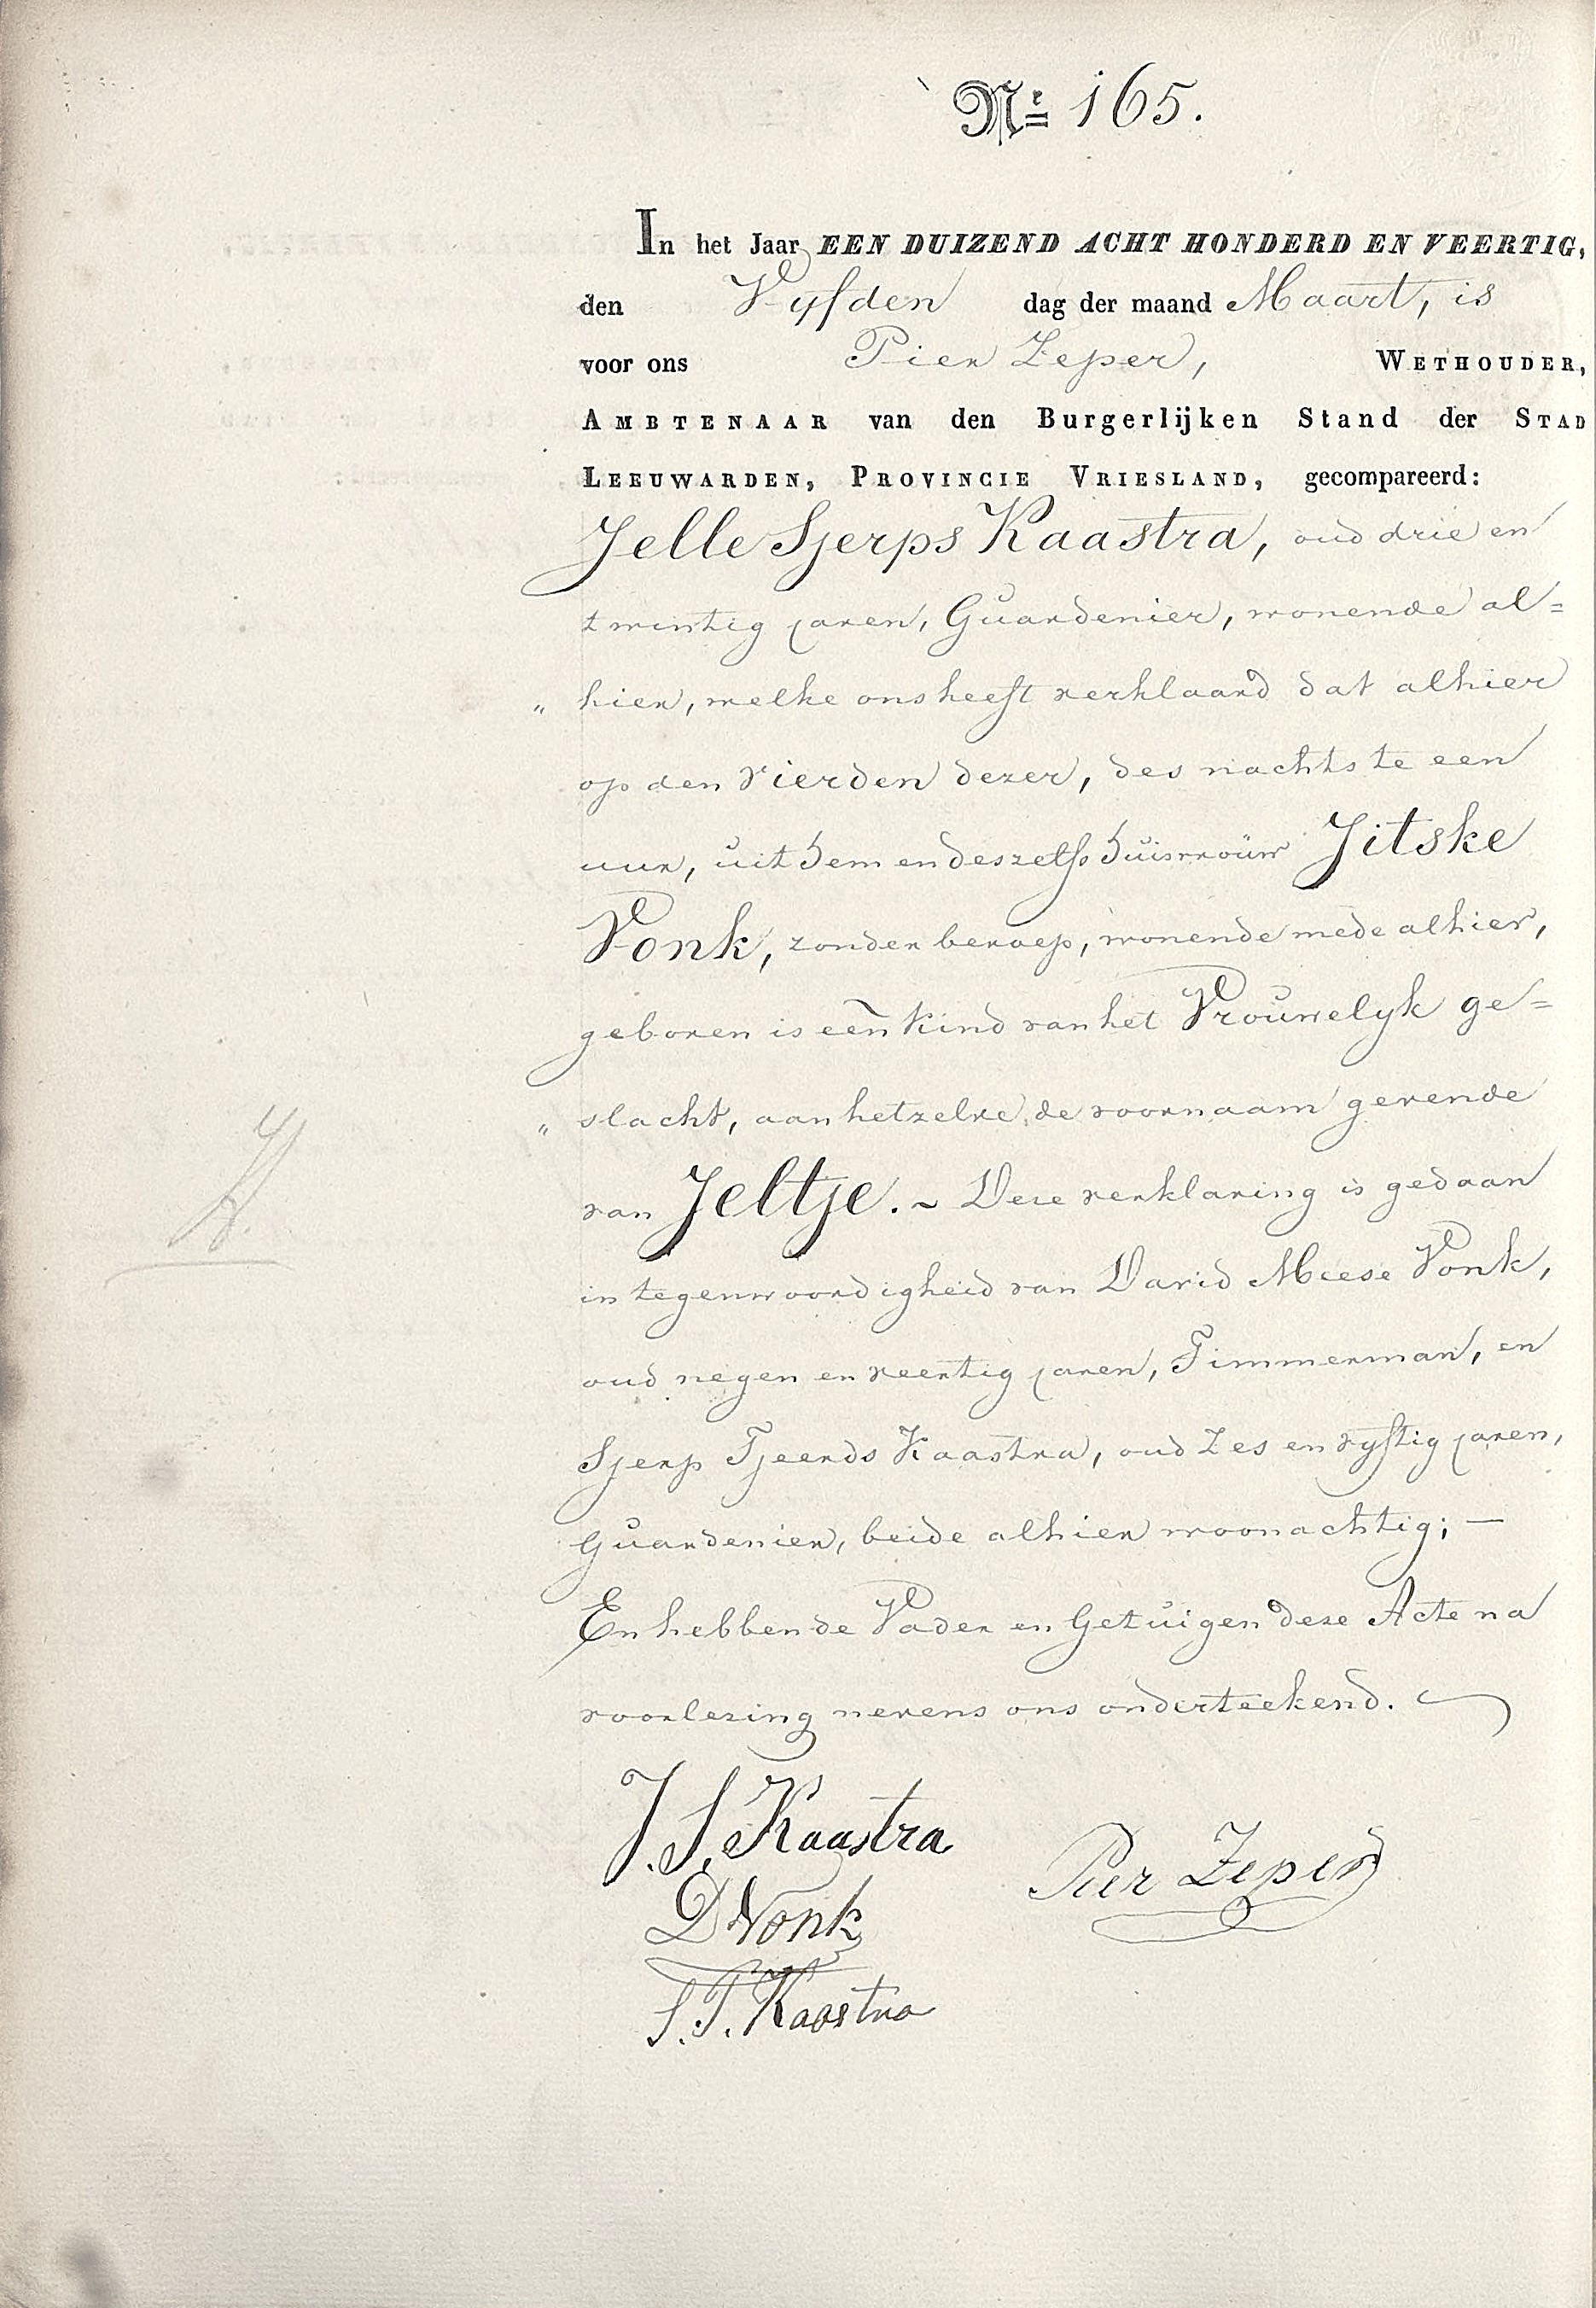 Nr. 165.
In het Jaar EEN DUIZEND ACHT HONDERD EN VEERTIG,
den Vyfden dag der maand Maart, is
voor ons Pier Zeper, WETHOUDER,
AMBTENAAR van den Burgerlijken Stand der STAD
LEEUWARDEN, PROVINCIE VRIESLAND, gecompareerd:
Jelle Sjerps Kaastra, oud drie en
twintig jaren, Guardenier, wonende al=
„ hier, welke ons heeft verklaard dat alhier
op den vierden dezer, des nachts te een
uur, uit hem en deszelfs huisvrouw Jitske
Vonk, zonder beroep, wonende mede alhier,
geboren is een kind van het Vrouwelyk ge=
„ slacht, aan hetzelve de voornaam gevende
van Jeltje. ~ Deze verklaring is gedaan
in tegenwoordigheid van David Meese Vonk,
oud negen en veertig jaren, Timmerman, en
Sjerp Tjeerds Kaastra, oud Zes en vyftig jaren,
Guardenier, beide alhier woonachtig; —
En hebben de Vader en Getuigen deze Acte na
voorlezing nevens ons onderteekend.
J. S. Kaastra
Pier Zeper
D Vonk
S. T. Kaastra